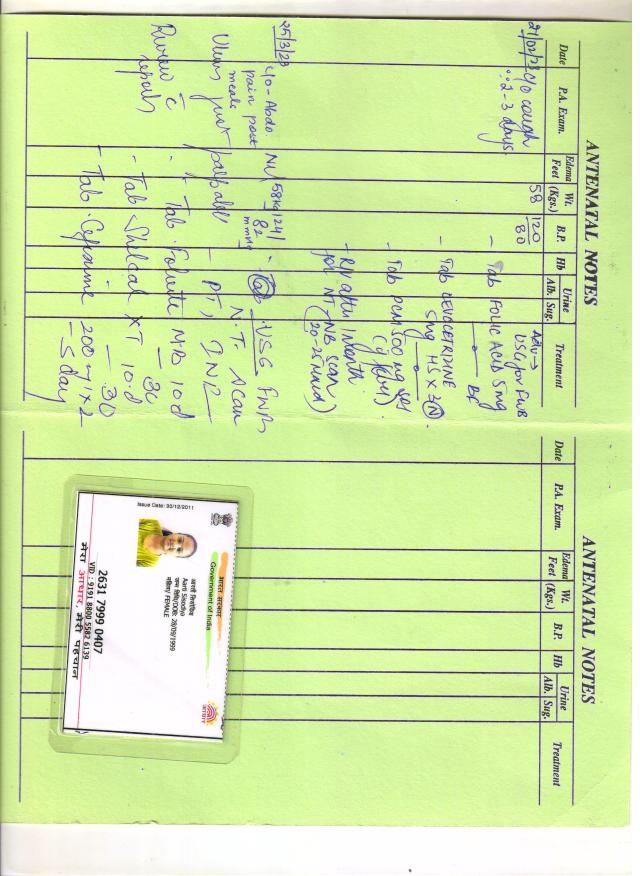 ANTENATAL NOTES
Date P.A. Exam. Edema Feet Wt. (Kgs.) B.P. Hb Urine Alb. Sug. Treatment
21/02/23 c/o cough 58 120/80 Adv →
2-3 days USG for FWB
- Tab FOLIC ACID 5mg
- Tab LEVOCETRIZINE
5mg HS x 3
- Tab PCM 500 mg SOS
- R/V after 1 month
for NT/NB scan
25/3/23 c/o - Abdo. 58kg 124/82 mmHg USG FWB
pain post N.T. Scan
meals
Uterus just palpable
Review c reports
- Tab. Folvite MB 10d
30
- Tab Shelcal XT 10:d
- 30
- Tab. Cefixime 200 - 1 x 2
- 5 day
ANTENATAL NOTES
Date P.A. Exam. Edema Feet Wt. (Kgs.) B.P. Hb Urine Alb. Sug. Treatment
Issue Date: 30/12/2011
भारत सरकार
Government of India
Aarti Sisodiya
जन्म तिथि/DOB: 28/09/1999
महिला/ FEMALE
2631 7999 0407
VID : 9191 8800 5582 6139
मेरा आधार, मेरी पहचान